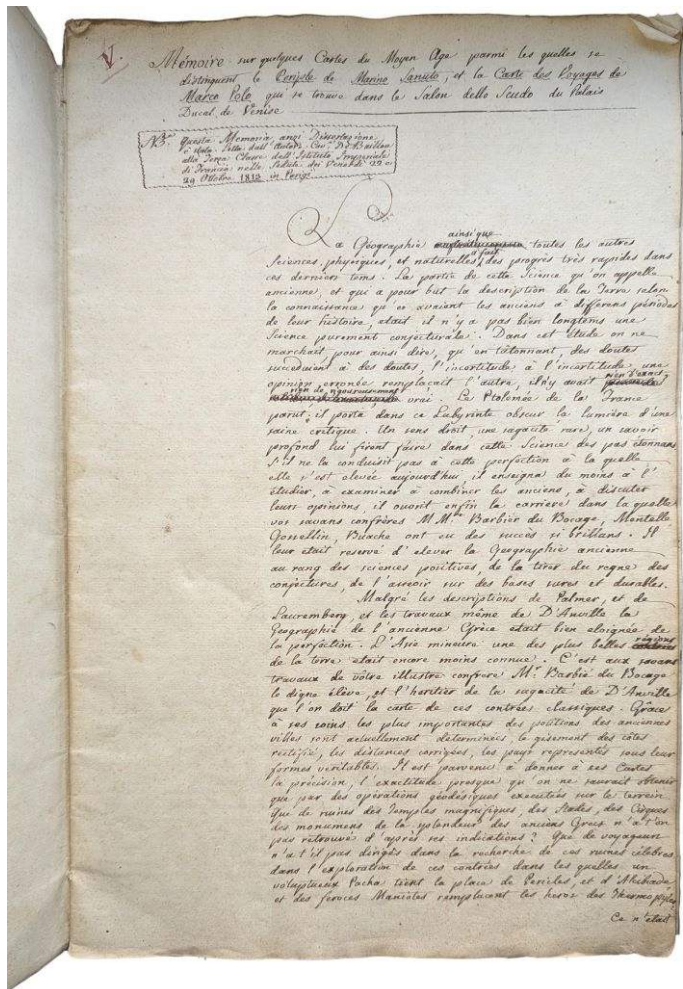 V.
Mémoire sur quelques Cartes du Moyen Age parmi les quelles se
distinguent le Periple de Marino Sanuto, et la Carte des Voyages de
Marco Polo qui se trouve dans le Salon dello Scudo du Palais
Ducal de Venise
NB. Questa Memoria anzi Dissertazione
è stata letta dall'Autore Cav.
alla Terza Classe dell'Istituto Imperiale
di Francia nelle Sedute dei Venerdì 22 e
29 Ottobre 1812 in Parigi
La Géographie ainsi que toutes les autres
Sciences physiques, et naturelles, a fait des progrès très rapides dans
ces derniers tems. La partie de cette Science qu'on appelle
ancienne, et qui a pour but la description de la Terre selon
la connaissance qu'en avaient les anciens à differens périodes
de leur histoire, etait il n'y a pas bien longtems une
Science purement conjecturale. Dans cet étude on ne
marchait pour ainsi dire, qu'en tâtonnant, des doutes
succedaient à des doutes, l'incertitude à l'incertitude une
opinion erronée remplaçait l'autre, il n'y avait rien d'exact
rien de rigoureusement vrai. Le Ptolémée de la France
parut; il porta dans ce Labyrinte obscur la lumière d'une
saine critique. Un sens droit, une sagacité rare, un savoir
profond lui firent faire dans cette Science des pas étonnans
S'il ne la conduisit pas à cette perfection à la quelle
elle s'est elevée aujourd'hui, il enseigna du moins à l'
étudier, à examiner à combiner les anciens, à discuter
leurs opinions, il ouvrit enfin la carriere dans la quelle
vos savans confrères M.Mrs Barbier du Bocage, Mentelle
Gossellin, Buache ont eu des succès si brillans. Il
leur etait reservé d'elever la Geographie ancienne
au rang des sciences positives, de la tirer du regne des
conjectures, de l'asseoir sur des bases sures et durables.
Malgré les descriptions de Palmer, et de
Lauremberg, et les travaux même de D'Anville la
Geographie de l'ancienne Grèce etait bien eloignée de
la perfection. L'Asie mineure une des plus belles régions
de la terre etait encore moins connue. C'est aux savans
travaux de vôtre illustre confrere Mr. Barbié du Bocage
le digne élève, et l'heritier de la sagacité de D'Anville
que l'on doit la carte de ces contrées classiques. Grâce
à ses soins les plus importantes des positions des anciennes
villes sont actuellement determinées, le gisement des côtes
rectifié, les distances corrigées, les pays representés sous leur
formes veritables. Il est parvenu à donner à ses Cartes
la précision, l'exactitude presque qu'on ne saurait obtenir
que par des opérations géodesiques executées sur le terrein
Que de ruines des Temples magnifiques, des Stades, des Cirques
des monumens de la splendeur des anciens Grecs n'a t'on
pas retrouvé d'après ses indications? Que de voyageurs
n'a t'il pas dirigés dans la recherche de ces ruines célebres
dans l'exploration de ces contrées dans les quelles un
voluptueux Pacha tient la place de Pericles, et d'Alcibiade
et des feroces Maniotes remplacent les heros des Thermopyles
Ce n'etait